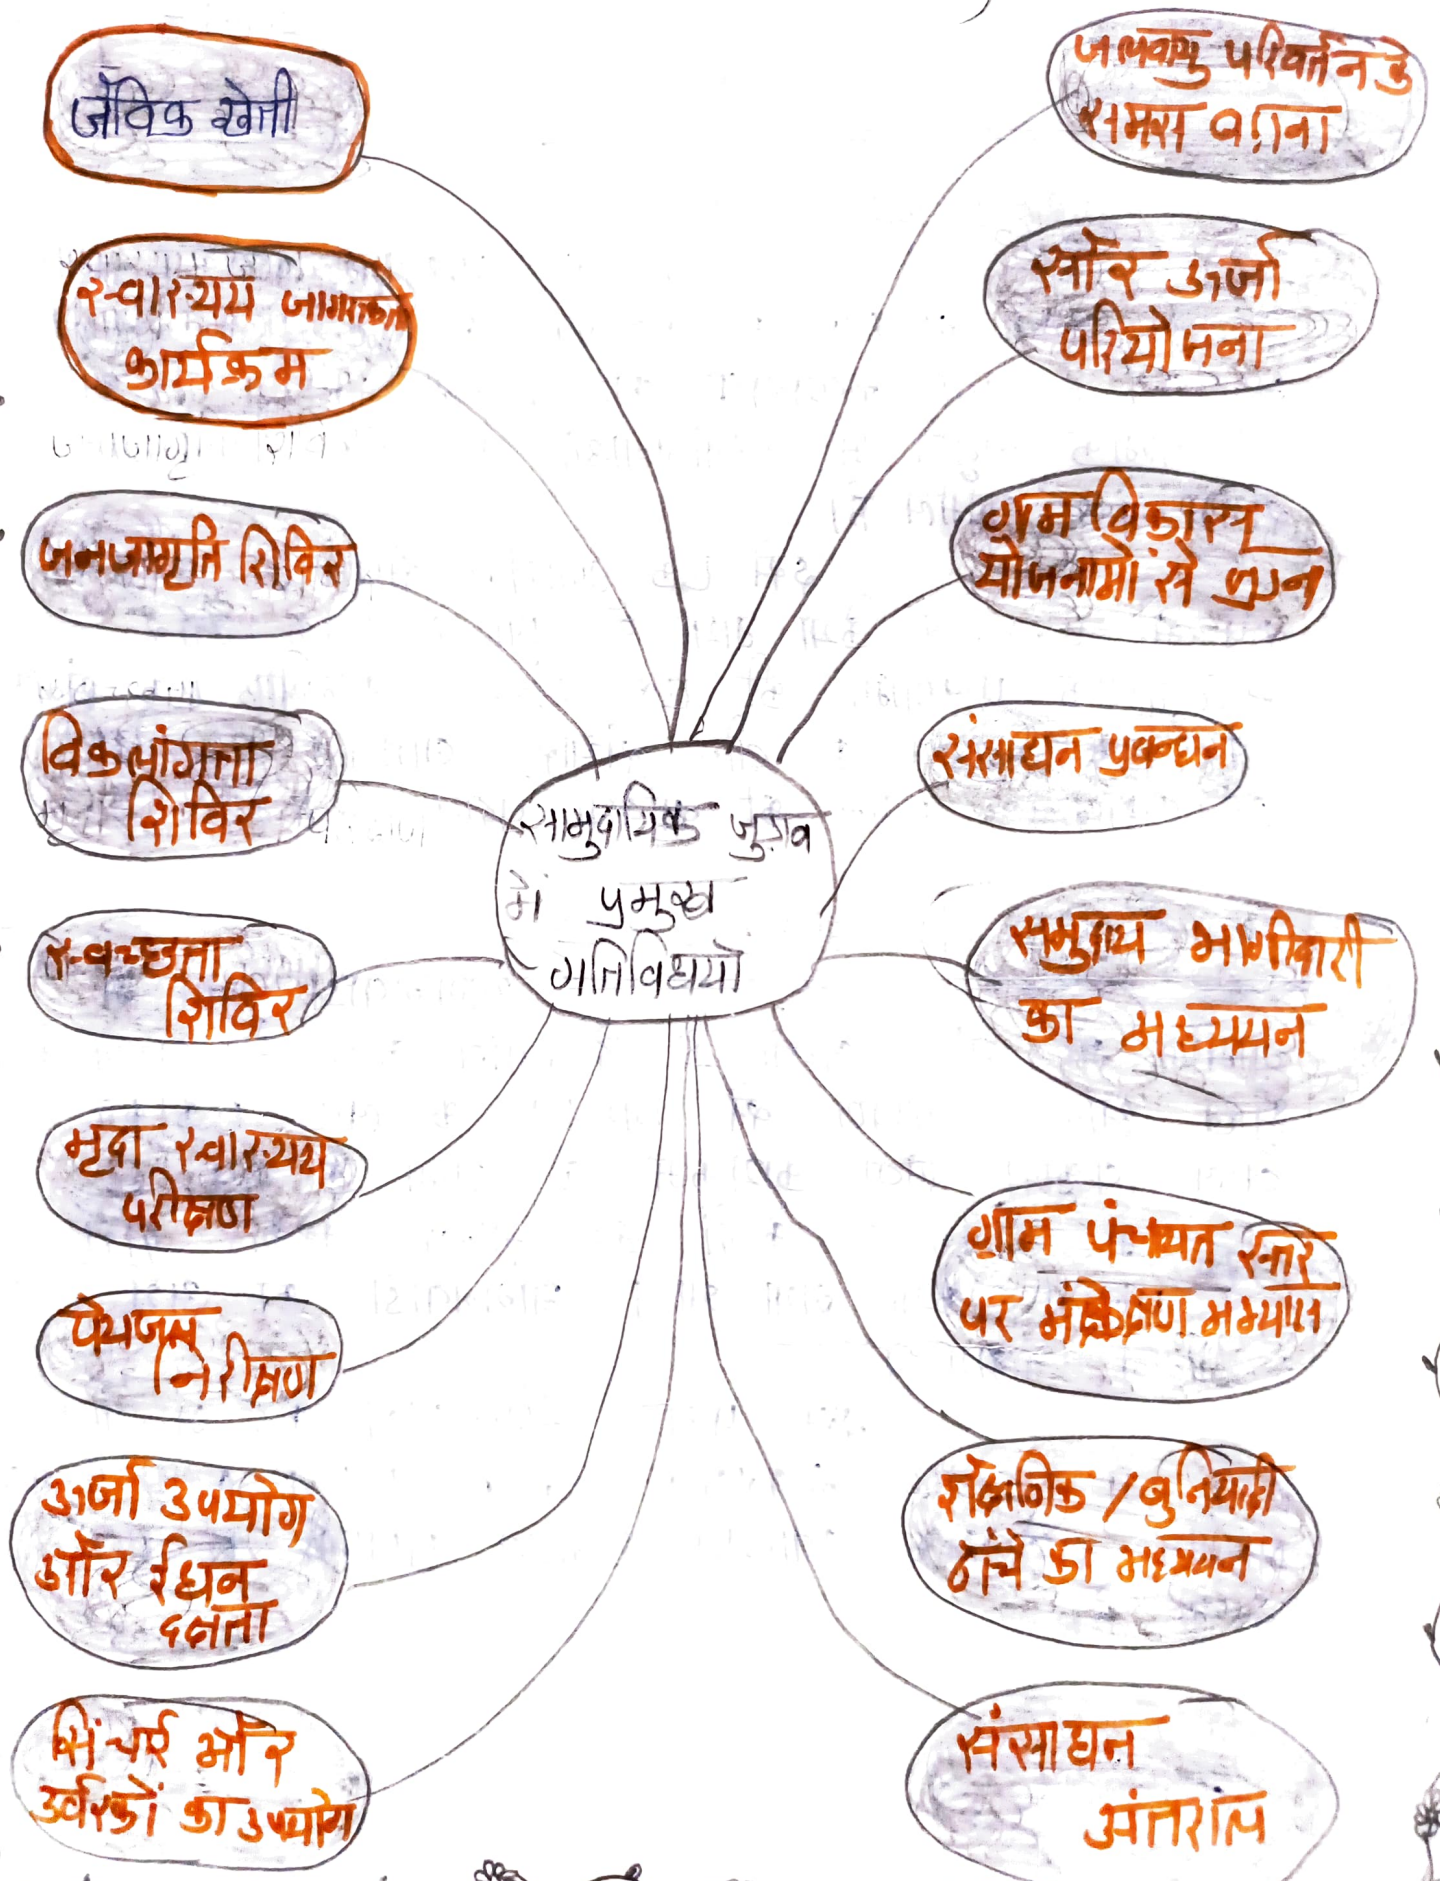 जैविक खेती
स्वास्थय जागरूकता
कार्यक्रम
जनजागृति शिविर
विकलांगता
शिविर
स्वच्छता
शिविर
मृदा स्वास्थय
परीक्षण
पेयजल
निरीक्षण
ऊर्जा उपयोग
और ईंधन
दक्षता
सिंचाई और
उर्वरकों का उपयोग
सामुदायिक जुड़ाव
में प्रमुख
गतिविधयों
जलवायु परिवर्तन के
समक्ष
सौर ऊर्जा
परियोजना
ग्राम विकास
योजनाओं से
संसाधन प्रबन्धन
समुदाय भागीदारी
का अध्ययन
ग्राम पंचायत स्तर
पर
शैक्षणिक / बुनियादी
ढांचे का अध्ययन
संसाधन
अंतराल